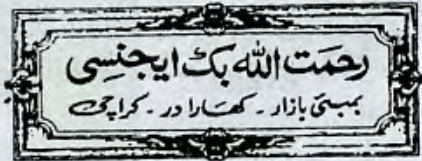 رحمت اللہ بک ایجنسی
بمبئی بازار ۔ کھارادر ۔ کراچی